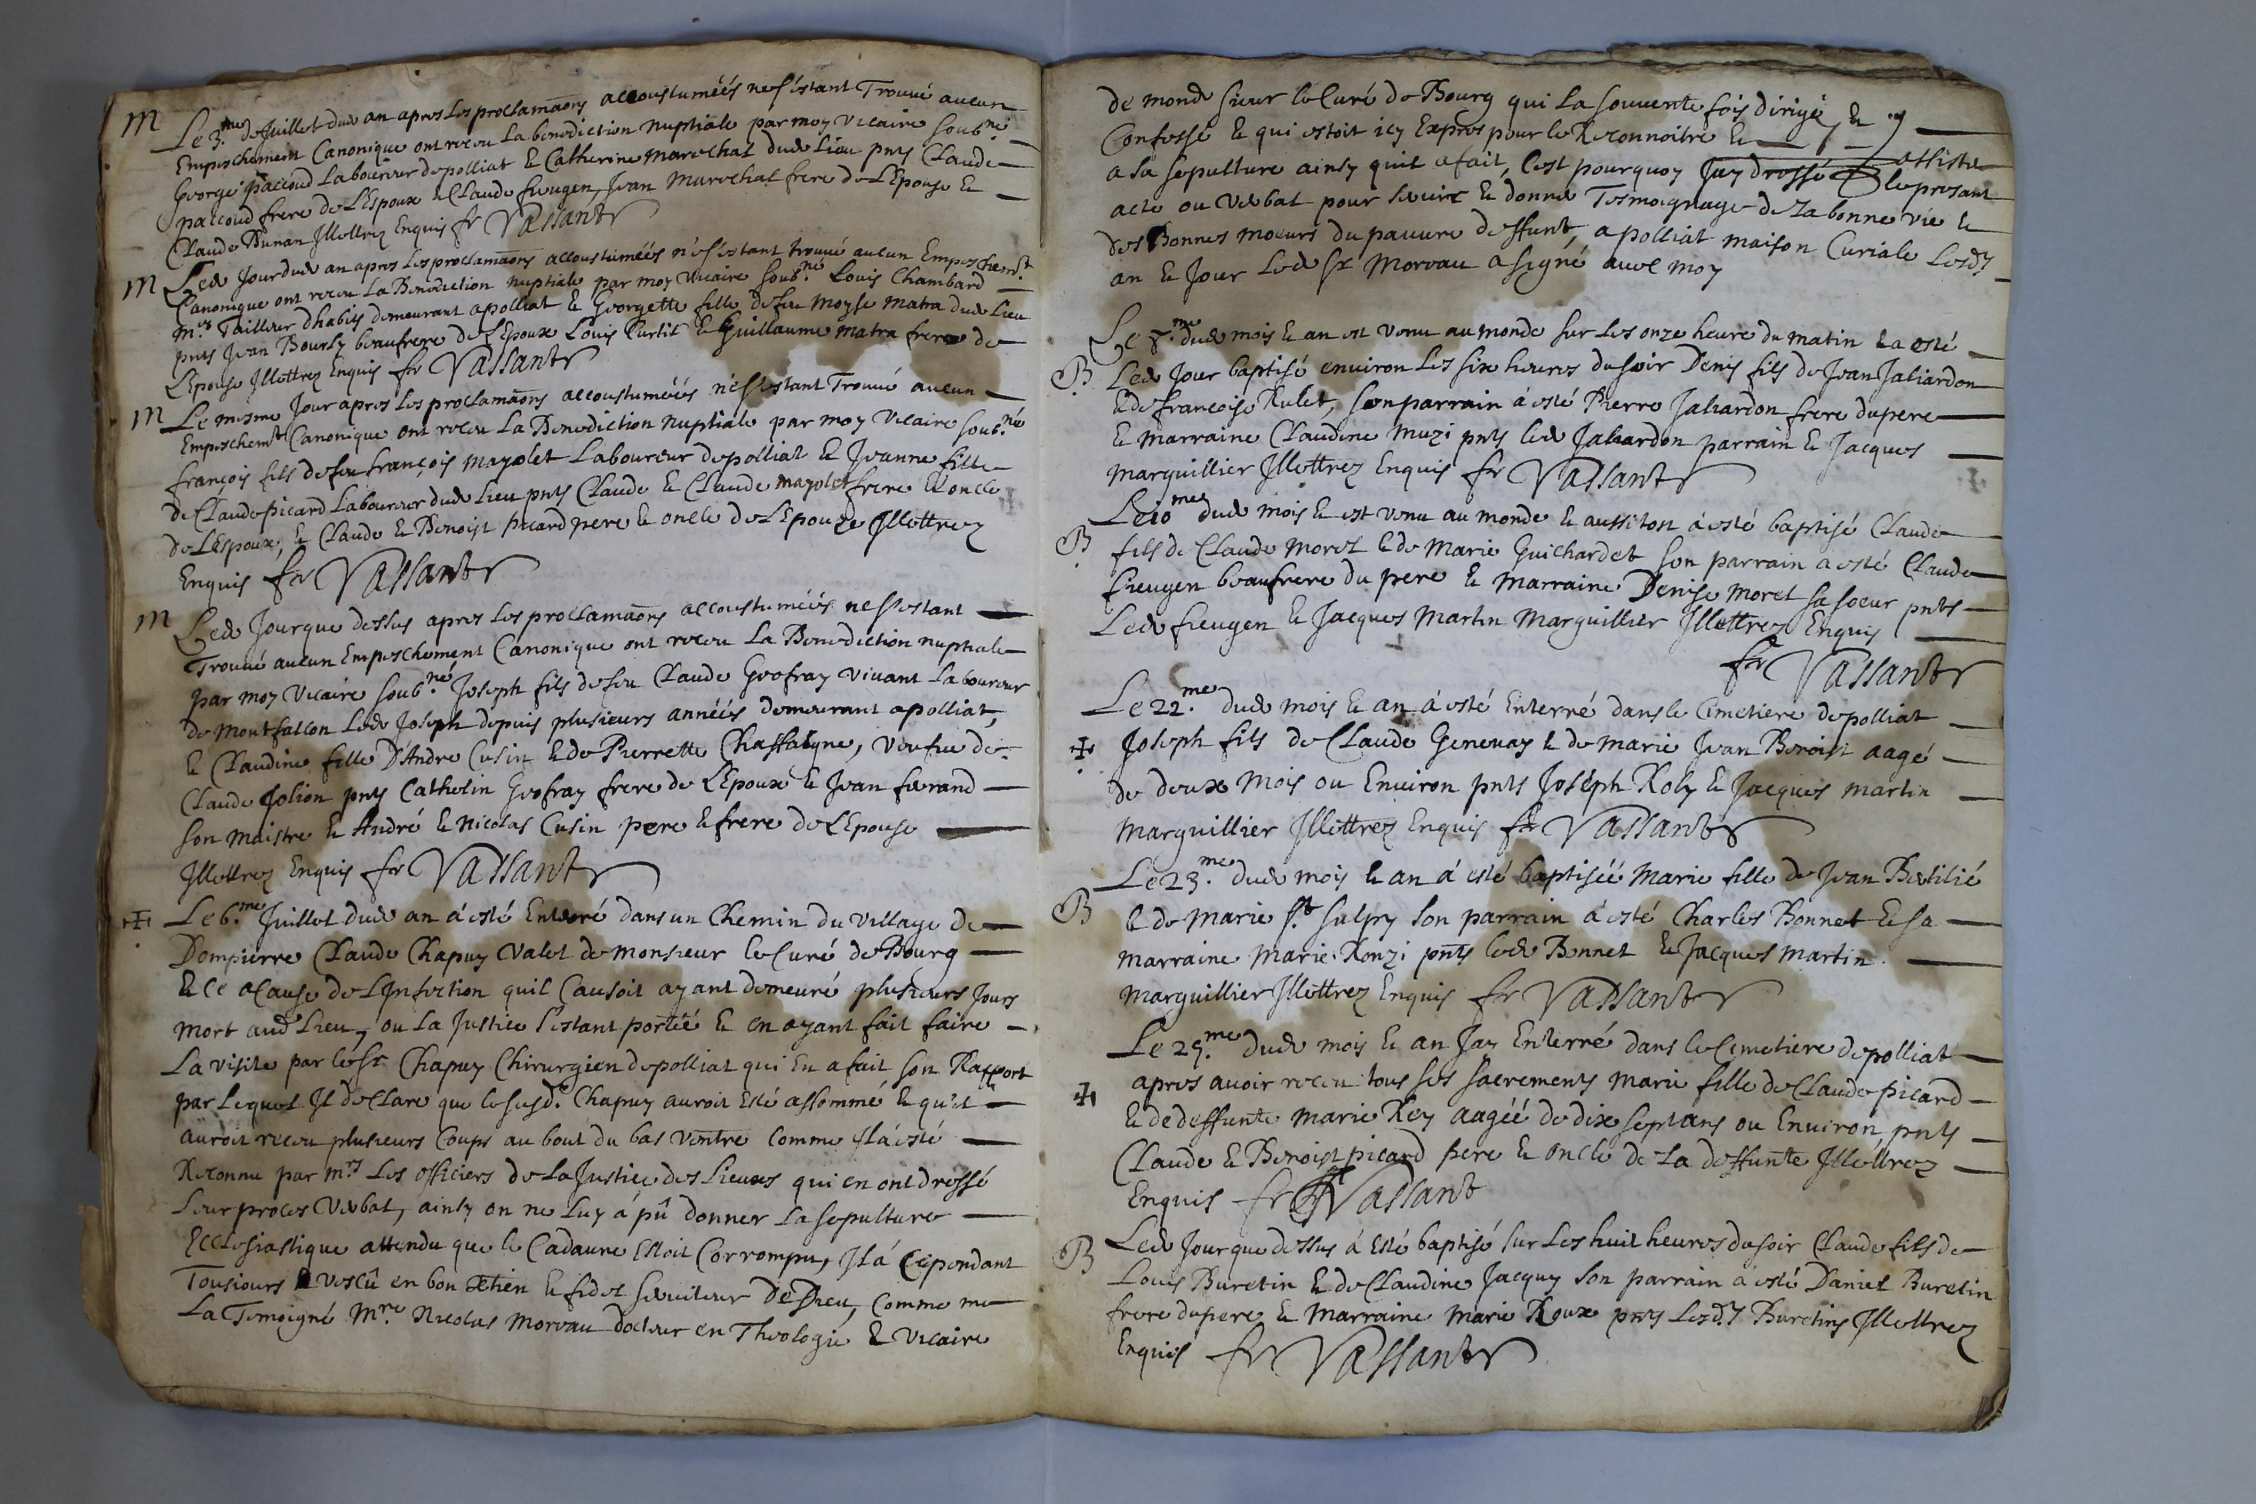 M Le 3.me de Juillet dud an apres les proclamaons accoustuméés nes'estant Trouué aucun
Empeschement Canonique ont receu La benediction Nuptiale par moy vicaire soub.né
George paccoud Laboureur de polliat & Catherine Marechal dud Lieu pnts Claude
paccoud frere de L'Espoux & Claude fieugen, Jean Marechal frere de L'Epouse &
Claude Dunan Illettrez Enquis fr Vassant
M Led Jour dud an apres les proclamaons accoustuméés nes'estant trouué aucun Empeschem.t
Canonique ont receu La Benediction nuptiale par moy vicaire soub.né Louis Chambard
M.e Tailleur d'habits demeurant a polliat & Georgette fille de feu Moyse Matra dud Lieu
pnts Jean Bourly beaufrere de L'Epoux Louis Curtit & Guillaume Matra frere de
L'Epouse Illettrez Enquis fr Vassant
M Le mesme Jour apres les proclamaons accoustuméés nes'estant Trouué aucun
Empeschemt Canonique ont receu La Benediction Nuptiale par moy vicaire soub.né
françois fils de feu françois Mayolet Laboureur de polliat & Jeanne fille
de Claude picard Laboureur dud Lieu pnts Claude & Claude mayolet frere & oncle
de L'Espoux, & Claude & Benoist picard pere & oncle de L'Epouze Illettrez
Enquis fr Vassant
M Led Jour que dessus apres les proclamaons accoustuméés nes'estant
Trouué aucun Empeschement Canonique ont receu La Benediction nuptiale
par moy vicaire soub.né Joseph fils de feu Claude Geofray viuant Laboureur
de Montfalcon Led Joseph depuis plusieurs annéés demeurant a polliat,
& Claudine fille D'Andre Cusin & de Pierrette Chassaigne, veufue de
Claude Jolion pnts Cathelin Geofray frere de L'Epoux & Jean ferand
son Maistre & André & Nicolas Cusin pere & frere de L'Epouse
Illettrez Enquis fr Vassant
Le 6.me Juillet dud an á esté Enterré dans un Chemin du village de
Dompierre Claude Chapuy valet de monsieur le Curé de Bourg
& Ce a Cause de L'Infection quil Causoit ayant demeuré plusieurs Jours
mort aud Lieu, ou La Justice s'estant portéé & en ayant fait faire
La visite par le Sr Chapuy Chirurgien de polliat qui En a fait son Rapport
par Lequel Il declare que le susd. Chapuy auroit Esté assommé & qu'il
auroit receu plusieurs Coups au bout du bas ventre Comme Il á esté
Reconnu par mrs Les officiers de La Justice des Lieux qui en ont dressé
Leur proces Verbal, ainsy on ne Luy á pû donner La sepulture
Ecclesiastique attendu que le Cadaure Estoit Corrompu, Il á Cependant
Tousiours vescû en bon Xetien & fidel seruiteur De Dieu, Comme me
La Temoigné Mre. Nicolas Moreau docteur en Theologie & vicaire
de monde sieur le Curé de Bourg qui La souuente fois dirigé &
Confessé & qui estoit icy Expres pour le Reconnoitre &
assisté
a sa sepulture ainsy quil a fait, C'est pourquoy Jay dressé le present
acte ou verbal pour seruir & donner Tesmoignage de La bonne vie &
des Bonnes moeurs du pauure deffunt, a polliat maison Curiale Lesd.s
an & Jour Led Sr Moreau a signé auec moy
B Le 7.me dud mois & an est venu au monde sur Les onze heure du matin & a esté
Led Jour baptisé enuiron les six heures du soir Denis fils de Jean Jaliardon
& de francoise Rulet, son parrain á esté Pierre Jaliardon frere du pere
& Marraine Claudine Muzi pnts led Jaliardon parrain & Jacques
Marguillier Illettrez Enquis fr Vassant
B Le 10.me dud mois & est venu au monde & aussitost á esté baptisé Claude
fils de Claude Moret & de Marie Guichardet son parrain a esté Claude
fieugen beaufrere du pere & Marraine Denise Moret sa soeur pnts
Led fieugen & Jacques Martin Marguillier Illettrez Enquis
fr Vassant
Le 22.me dud mois & an á esté Enterré dans le Cimetiere de polliat
Joseph fils de Claude Geneuay & de Marie Jean Benoist aagé
de deux Mois ou Enuiron pnts Joseph Roly & Jacques Martin
Marguillier Illettrez Enquis fr Vassant
B Le 23.me dud mois & an á esté baptiséé Marie fille de Jean Bertilié
& de Marie St. sulpy son parrain á esté Charles Bonnet & sa
marraine Marie Ronzi pnts led Bonnet & Jacques Martin
Marguillier Illettrez Enquis fr Vassant
Le 25.me dud mois & an Jay Enterré dans le Cimetiere de polliat
apres auoir receu tous ses sacrements Marie fille de Claude picard
& de deffunte Marie Rey aagéé de dix sept ans ou Enuiron, pnts
Claude & Benoist picard pere & oncle de La deffunte Illettrez
Enquis fr Vassant
B Led Jour que dessus á Esté baptisé sur Les huit heures du soir Claude fils de
Louis Buretin & de Claudine Jacquy son parrain á esté Daniel Buretin
frere du pere & Marraine Marie Roux pnts Lesd.s Buretins Illettrez
Enquis fr Vassant